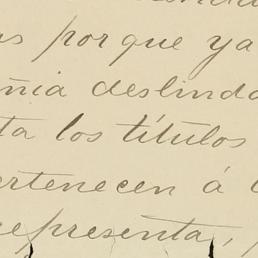 us porque ya
ñia deslinda
ta los títulos
ertenecen á
representa,